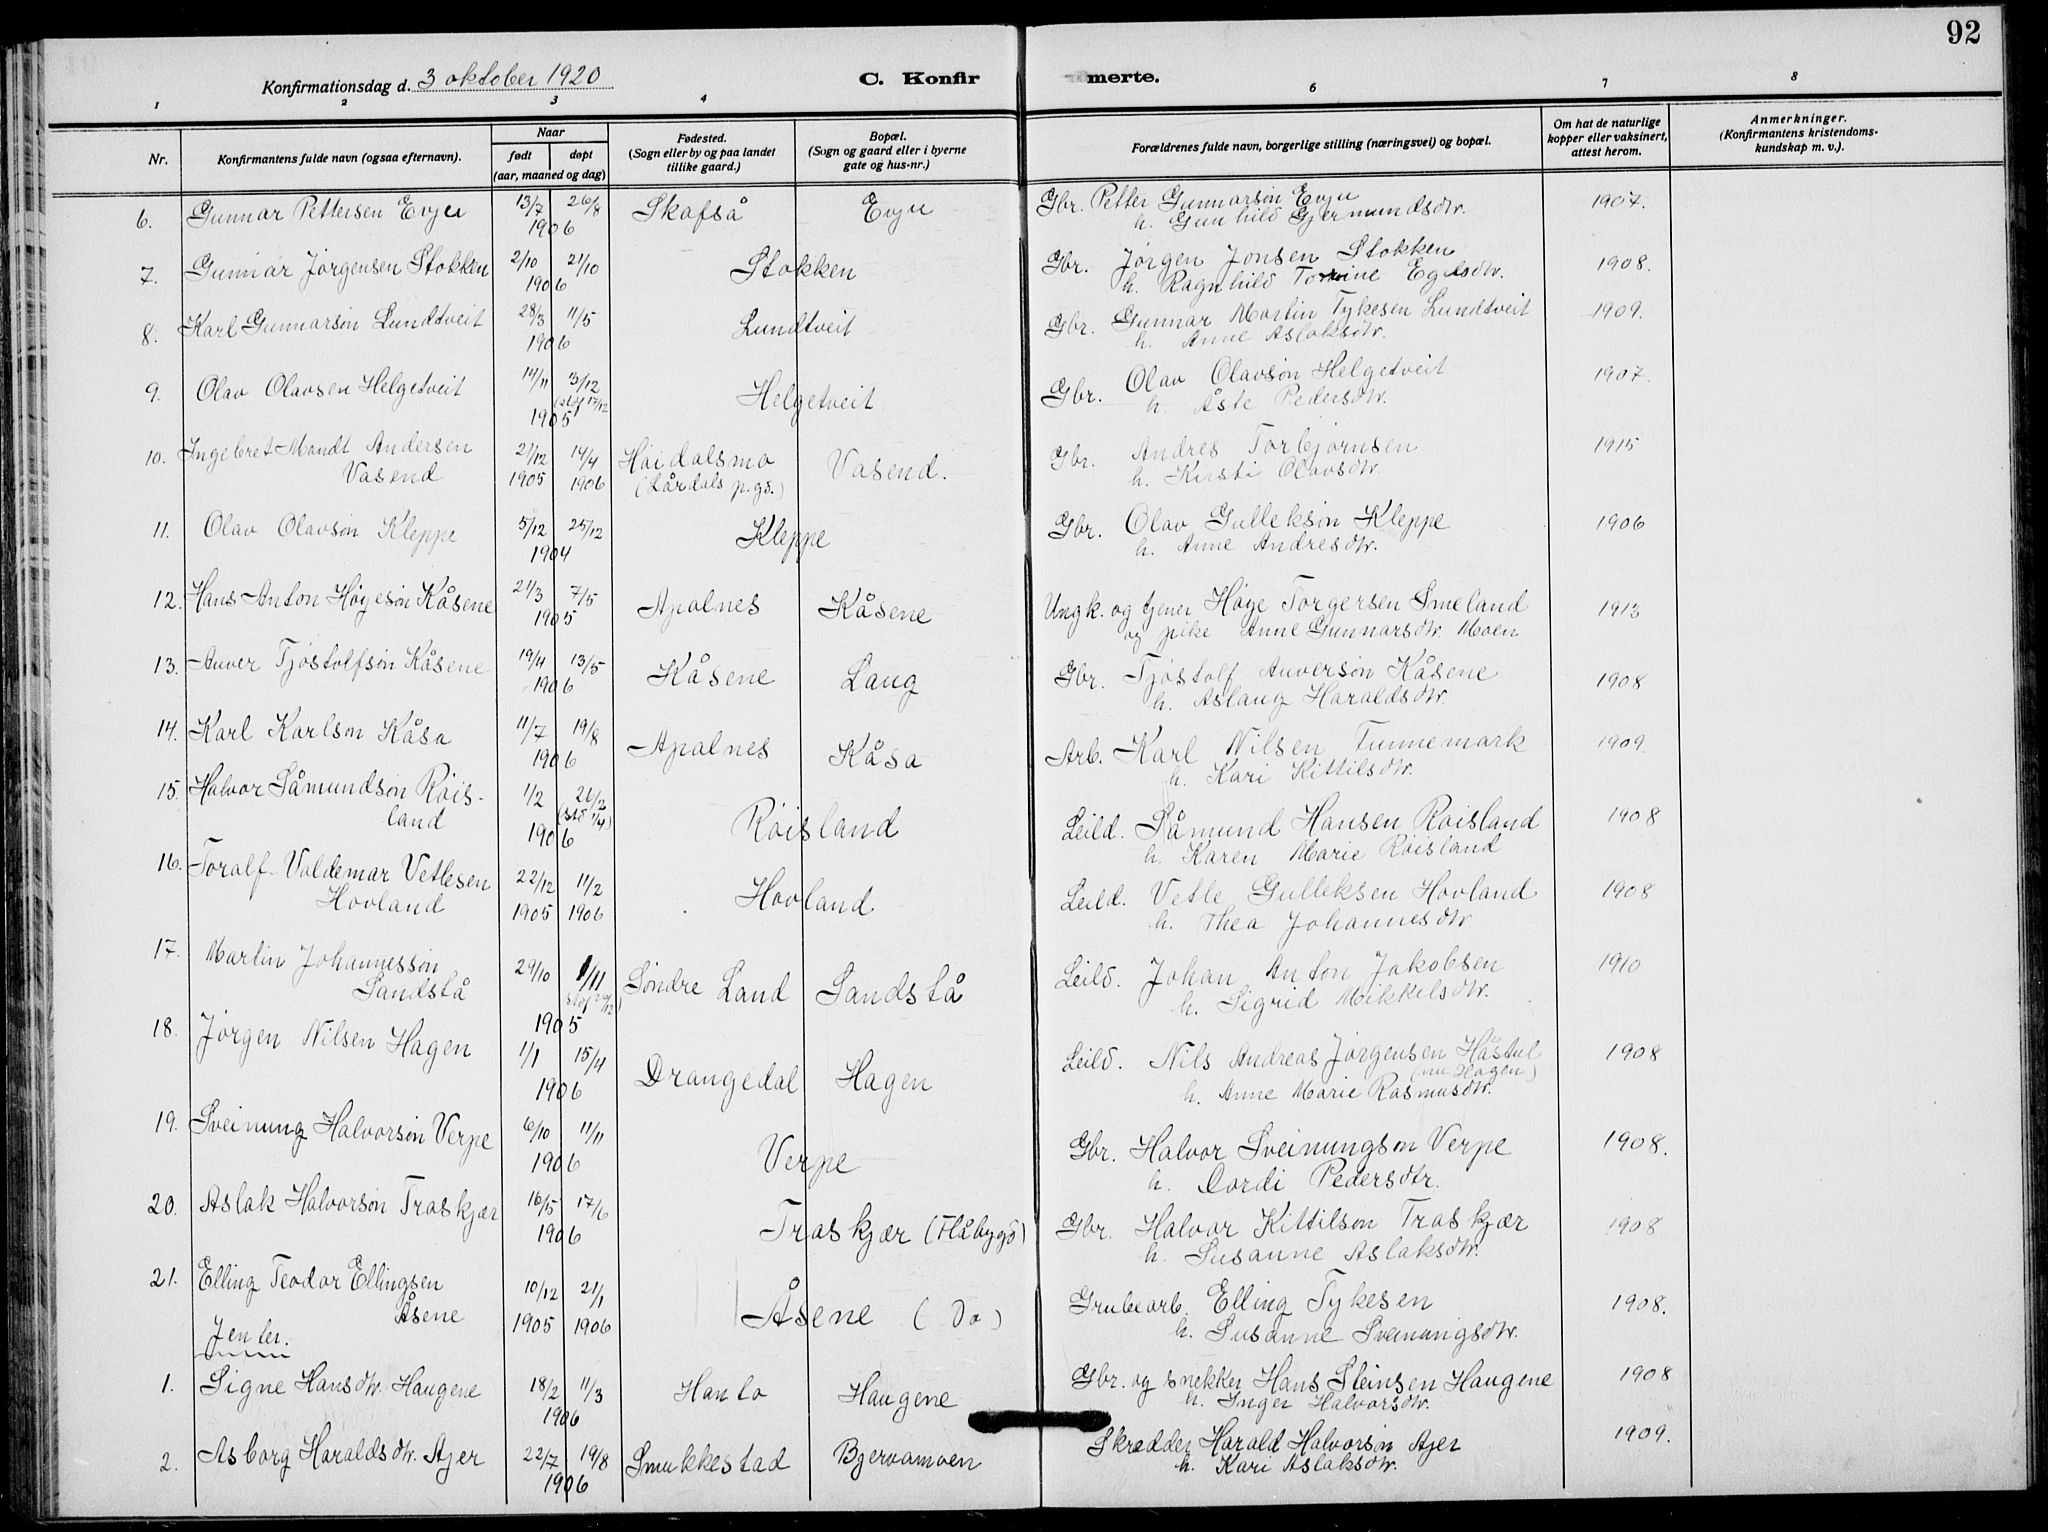 92
Konfirmationsdag d. 3 oktober 1920 C. Konfirmerte.
1 2 3 4 6 7 8
Nr. Konfirmantens fulde navn (ogsaa efternavn). Naar født døpt (aar, maaned og dag) Fødested. (Sogn eller by og paa landet tillike gaard.) Bopæl. (Sogn og gaard eller i byerne gate og hus-nr.) Forældrenes fulde navn, borgerlige stilling (næringsvei) og bopæl. Om hat de naturlige kopper eller vaksinert, attest herom. Anmerkninger. (Konfirmantens kristendoms-kundskap m. v.).
6. Gunnar Pettersen Evju 13/7 26/8 Skafså Evju Gbr. Petter Gunnarsøn Evju 1907.
1906 h. Gunhild Gjermundsdtr.
7. Gunnar Jørgensen Stokken 2/10 21/10 Stokken Gbr. Jørgen Jonsen Stokken 1908.
1906 h. Ragnhild Tomine Egilsdtr.
8. Karl Gunnarsøn Lundtveit 28/3 11/5 Lundtveit Gbr. Gunnar Martin Tykesen Lundtveit 1909.
1906 h. Anne Aslaksdtr.
9. Olav Olavsen Helgetveit 14/11 3/12 Helgetveit Gbr. Olav Olavsøn Helgetveit 1907.
(stf 17/12
1905 h. Åste Pedersdtr.
10. Ingebret Mandt Andersen 21/12 14/4 Høidalsmo Vasend. Gbr. Andres Torbjørnsen 1915
Vasend 1905 1906 (Lårdals p.gd.) h. Kirsti Olavsdtr.
11. Olav Olavsøn Kleppe 5/12 25/12 Kleppe Gbr. Olav Gulleksøn Kleppe 1906
1904 h. Anne Andresdtr.
12. Hans Anton Høyesøn Kåsene 21/3 7/5 Apalnes Kåsene Ungk. og tjener Høye Torgersen Smeland 1913
1905 og pike Anne Gunnarsdtr. Moen
13. Anver Tjøstolfsøn Kåsene 19/4 13/5 Kåsene Laug Gbr. Tjøstolf Anversøn Kåsene 1908
1906 h. Aslaug Haraldsdtr.
14. Karl Karlson Kåsa 11/7 19/8 Apalnes Kåsa Arb. Karl Nilsen Tunnemark 1909.
1906 h. Kari Kittilsdtr.
15. Halvor Såmundsøn Røis- 1/2 26/2 Røisland Leild. Såmund Hansen Røisland 1908
land (std 1/4)
1906 h. Karen Marie Røisland
16. Toralf Valdemar Vetlesen 22/12 11/2 Hovland Leild. Vetle Gulleksen Hovland 1908
Hovland 1905 1906 h. Thea Johannesdtr.
17. Martin Johannessøn 29/10 1/11 Søndre Land Sandstå Leild. Johan Anton Jakobsen 1910
Sandstå h. Sigrid Mikkelsdtr.
1905
18. Jørgen Nilsen Hagen 1/1 15/4 Drangedal Hagen Leild. Nils Andreas Jørgensen Håstul 1908
(nu Hagen)
1906 h. Anne Marie Rasmusdtr.
19. Sveinung Halvorsøn Verpe 6/10 11/11 Verpe Gbr. Halvor Sveinungson Verpe 1908.
1906 h. Dordi Pedersdtr.
20. Aslak Halvorsøn Traskjær 16/5 17/6 Traskjær (Flåbygd) Gbr. Halvor Kittilson Traskjær 1908
1906 h. Susanne Aslaksdtr.
21. Elling Teodor Ellingsen 10/12 21/1 Åsene (Do) Grubearb. Elling Tykesen 1908.
Åsene 1905 1906 h. Susanne Sveinungsdtr.
Jenter.
1. Signe Hansdtr. Haugene 18/2 11/3 Hanto Haugene Gbr. og snekker Hans Steinsen Haugene 1908
1906 h. Inger Halvorsdtr.
2. Asborg Haraldsdtr. Ajer 22/7 19/8 Smukkestad Bjervamoen Skrædder Harald Halvorsøn Ajer 1909.
1906 h. Kari Aslaksdtr.